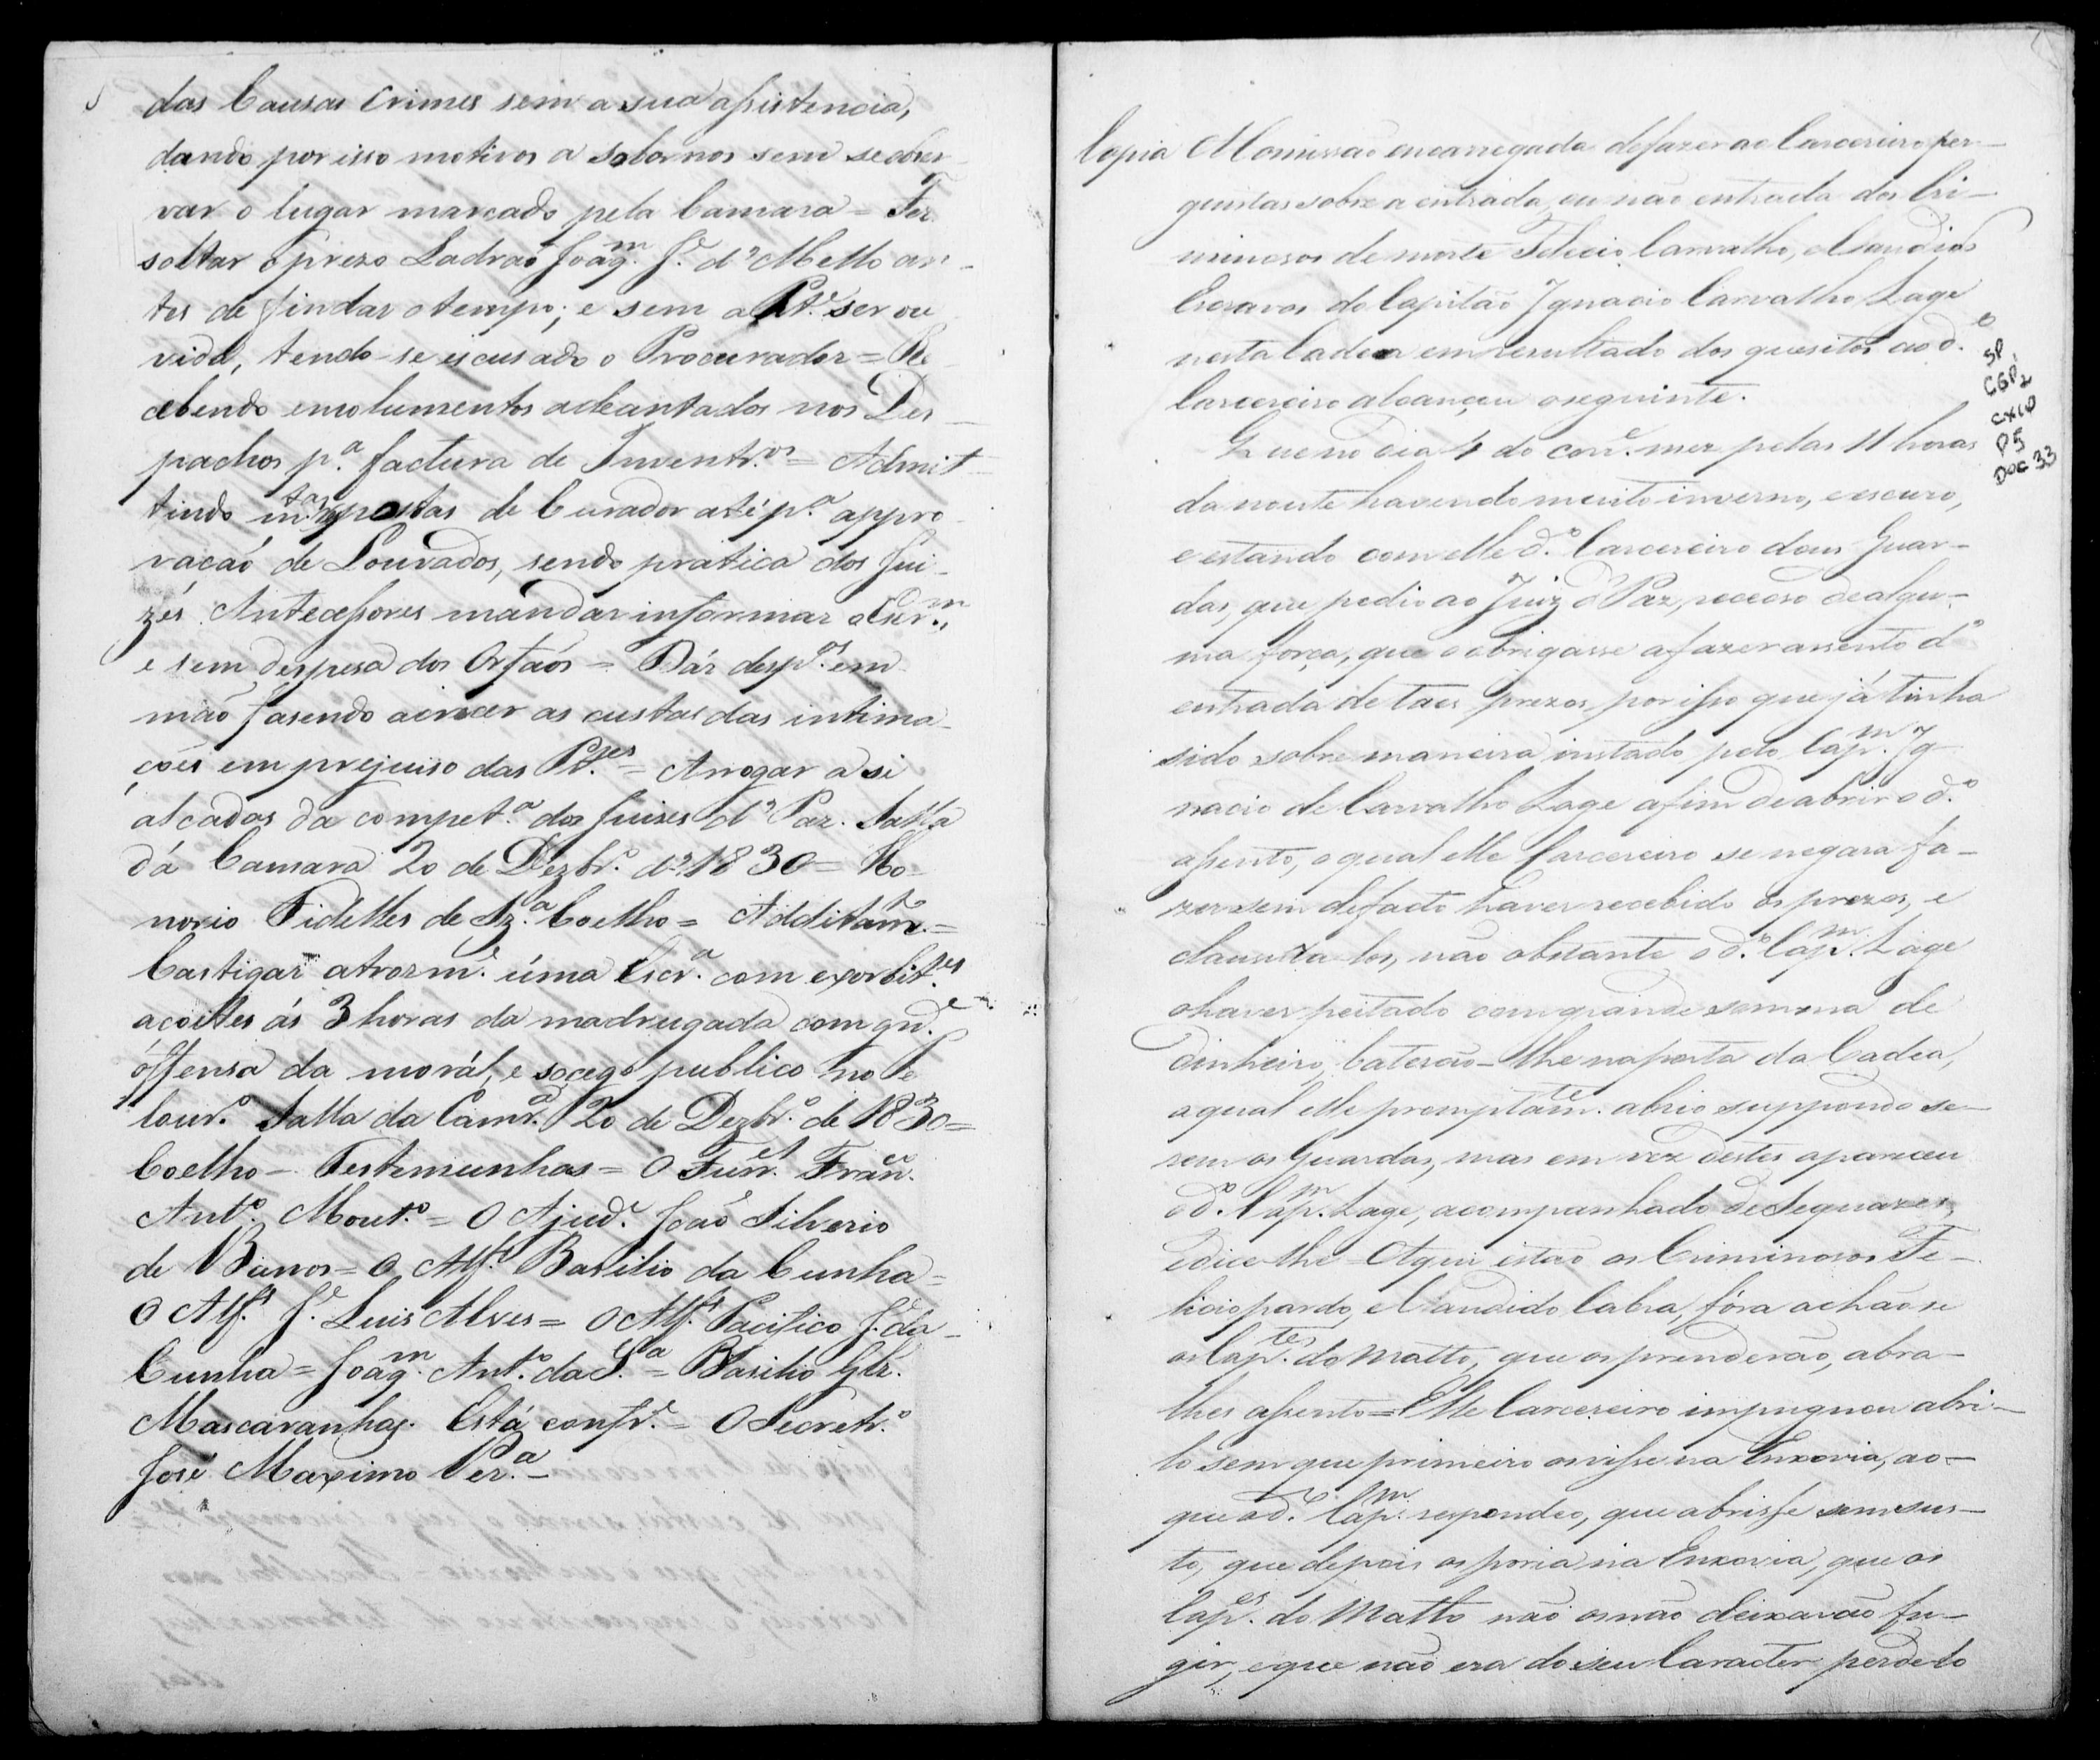 das Causas Crimes sem a sua assistencia,
dando por isso motivos a sobornos sem se obser-
var o lugar marcado pela Camara = Fez
soltar o prezo Ladraõ Joaqm. Je. de Mello an-
tes de findar o tempo; e sem a Pte. ser ou
vida, tendo-se escusado o Procurador = Re
cebendo emolumentos adeantados nos Des-
pachos pa. factura de Inventros. = Admit-
tindo mtas. postas de Curador até pa. appro
vaçaõ de Louvados, sendo pratica dos Jui-
zes Antecessores mandar informar o Curm.,
e sem despesa dos Orfaõs = Dár desposs. em
mão fasendo crescer as custas das intima-
ções em prejuiso das Ptes. = Arrogar a si
alcadas da competa. dos Juises de Paz. Salla
dá Camara 20 de Dezbro. de 1830 = Ho-
norio Fidelles de Sza. Coelho = Additamto. =
Castigar atrozme. úma Escra. com exorbites.
açoittes ás 3 horas da madrugada com gde.
óffensa da morál, e socego publico no Pe
louro. Salla da Camra. 20 de Dezbro. de 1830 =
Coelho - Testemunhas = O Furrel. Franco.
Anto. Montro. = O Ajude. João Silverio
de Barros = O Alfs. Basilio da Cunha =
O Alfs. Je. Luis Alves = O Alfs. Pacifico J. da
Cunha = Joaqm. Anto. da Sa. = Basilio Glz.
Mascaranhas. Está confre. = O Secretro.
José Maximo Pera. -
Copia A Comissão encarregada de fazer ao Carcereiro per-
guntas sobre a entrada, ou não entrada dos Cri-
minosos de morte Felicio Carvalho, e Candido
Escravos do Capitão Ignacio Carvalho Lage
nesta Cadea em resultado dos quesitos ao do.
Carcereiro alcançou o seguinte.
Que no dia 4 do corre. mez pelas 11 horas
da noute havendo muito inverno, e escuro,
e estando com elle do. Carcereiro dous Guar-
das, que pedio ao Juiz de Paz, receoso de algu-
ma força, que o obrigasse a fazer assento de
entrada de taes prezos, por isso que já tinha
sido sobre maneira instado pelo Capm. Ig-
nacio de Carvalho Lage afim de abrir o do.
assento, o qual elle Carcereiro se negara fa-
zer sem defacto haver recebido os prezos, e
clausura-los, não obstante o do. Capm. Lage
o haver peitado com grande somma de
dinheiro, baterão-lhe na porta da Cadea,
a qual elle promptamte. abrio suppondo se-
rem os Guardas, mas em vez destes apareceu
o do. Capm. Lage, acompanhado de Sequazes,
e dice-lhe - Aqui estão os Criminosos Fe-
licio pardo, e Candido Cabra, fóra achãose
os Captes. do Matto, que os prenderão, abra-
lhes assento = Elle Carcereiro impugnou abri-
lo sem que primeiro os visse na Enxovia, ao-
que o do. Capm. respondeo, que abrisse sem sus-
to, que depois os poria na Enxovia, que os
Capes. do Matto não os não deixavão fu-
gir, e que não era do seu Caracter perdelo
SP
CGP1
CX10
P5
DOC 33